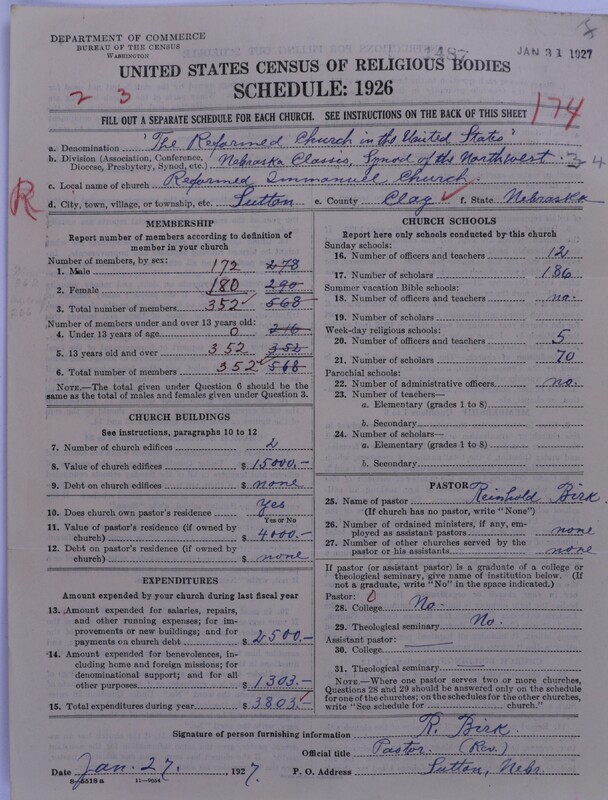 DEPARTMENT OF COMMERCE
BUREAU OF THE CENSUS
WASHINGTON
1487
JAN 31 1927
UNITED STATES CENSUS OF RELIGIOUS BODIES
SCHEDULE: 1926
2 3
174
FILL OUT A SEPARATE SCHEDULE FOR EACH CHURCH. SEE INSTRUCTIONS ON THE BACK OF THIS SHEET
a. Denomination "The Reformed Church in the United States"
b. Division (Association, Conference, Diocese, Presbytery, Synod, etc.) Nebraska Classis, Synod of the Northwest. 34
c. Local name of church Reformed Immanuel Church.
R
d. City, town, village, or township, etc. Sutton e. County Clay f. State Nebraska
MEMBERSHIP
Report number of members according to definition of member in your church
Number of members, by sex:
1. Male 172 278
2. Female 180 290
3. Total number of members 352 568
Number of members under and over 13 years old:
4. Under 13 years of age 0 216
5. 13 years old and over 352 352
6. Total number of members 352 568
NOTE.—The total given under Question 6 should be the same as the total of males and females given under Question 3.
CHURCH BUILDINGS
See instructions, paragraphs 10 to 12
7. Number of church edifices 2
8. Value of church edifices $ 15000.—
9. Debt on church edifices $ none
10. Does church own pastor's residence? Yes
Yes or No
11. Value of pastor's residence (if owned by church) $ 4000.—
12. Debt on pastor's residence (if owned by church) $ none
EXPENDITURES
Amount expended by your church during last fiscal year
13. Amount expended for salaries, repairs, and other running expenses; for improvements or new buildings; and for payments on church debt $ 2500.—
14. Amount expended for benevolences, including home and foreign missions; for denominational support; and for all other purposes $ 1303.—
15. Total expenditures during year $ 3803.—
CHURCH SCHOOLS
Report here only schools conducted by this church
Sunday schools:
16. Number of officers and teachers 12
17. Number of scholars 186
Summer vacation Bible schools:
18. Number of officers and teachers no.
19. Number of scholars
Week-day religious schools:
20. Number of officers and teachers 5
21. Number of scholars 70
Parochial schools:
22. Number of administrative officers no.
23. Number of teachers—
a. Elementary (grades 1 to 8)
b. Secondary
24. Number of scholars—
a. Elementary (grades 1 to 8)
b. Secondary
PASTOR
25. Name of pastor Reinhold Birk.
(If church has no pastor, write "None")
26. Number of ordained ministers, if any, employed as assistant pastors none
27. Number of other churches served by the pastor or his assistants none
If pastor (or assistant pastor) is a graduate of a college or theological seminary, give name of institution below. (If not a graduate, write "No" in the space indicated.)
Pastor: 0
28. College No.
29. Theological seminary No.
Assistant pastor:
30. College
31. Theological seminary
NOTE.—Where one pastor serves two or more churches, Questions 28 and 29 should be answered only on the schedule for one of the churches; on the schedules for the other churches, write "See schedule for ______ church."
Signature of person furnishing information R. Birk.
Official title Pastor (Rev.)
Date Jan. 27, 1927. P. O. Address Sutton, Nebr.
8-6518a 11-8054